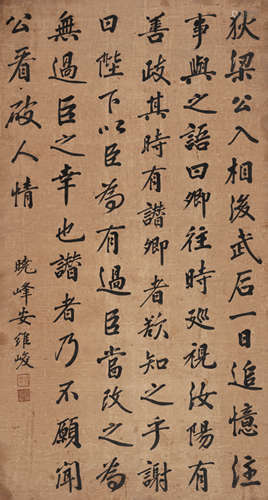 狄梁公入相後武后一日追憶往
事與之語曰卿往時廵視汝陽有
善政其時有譖卿者欲知之乎謝
曰陛下以臣為有過臣當改之為
無過臣之幸也譖者乃不願聞
公看破人情
曉峰安維峻